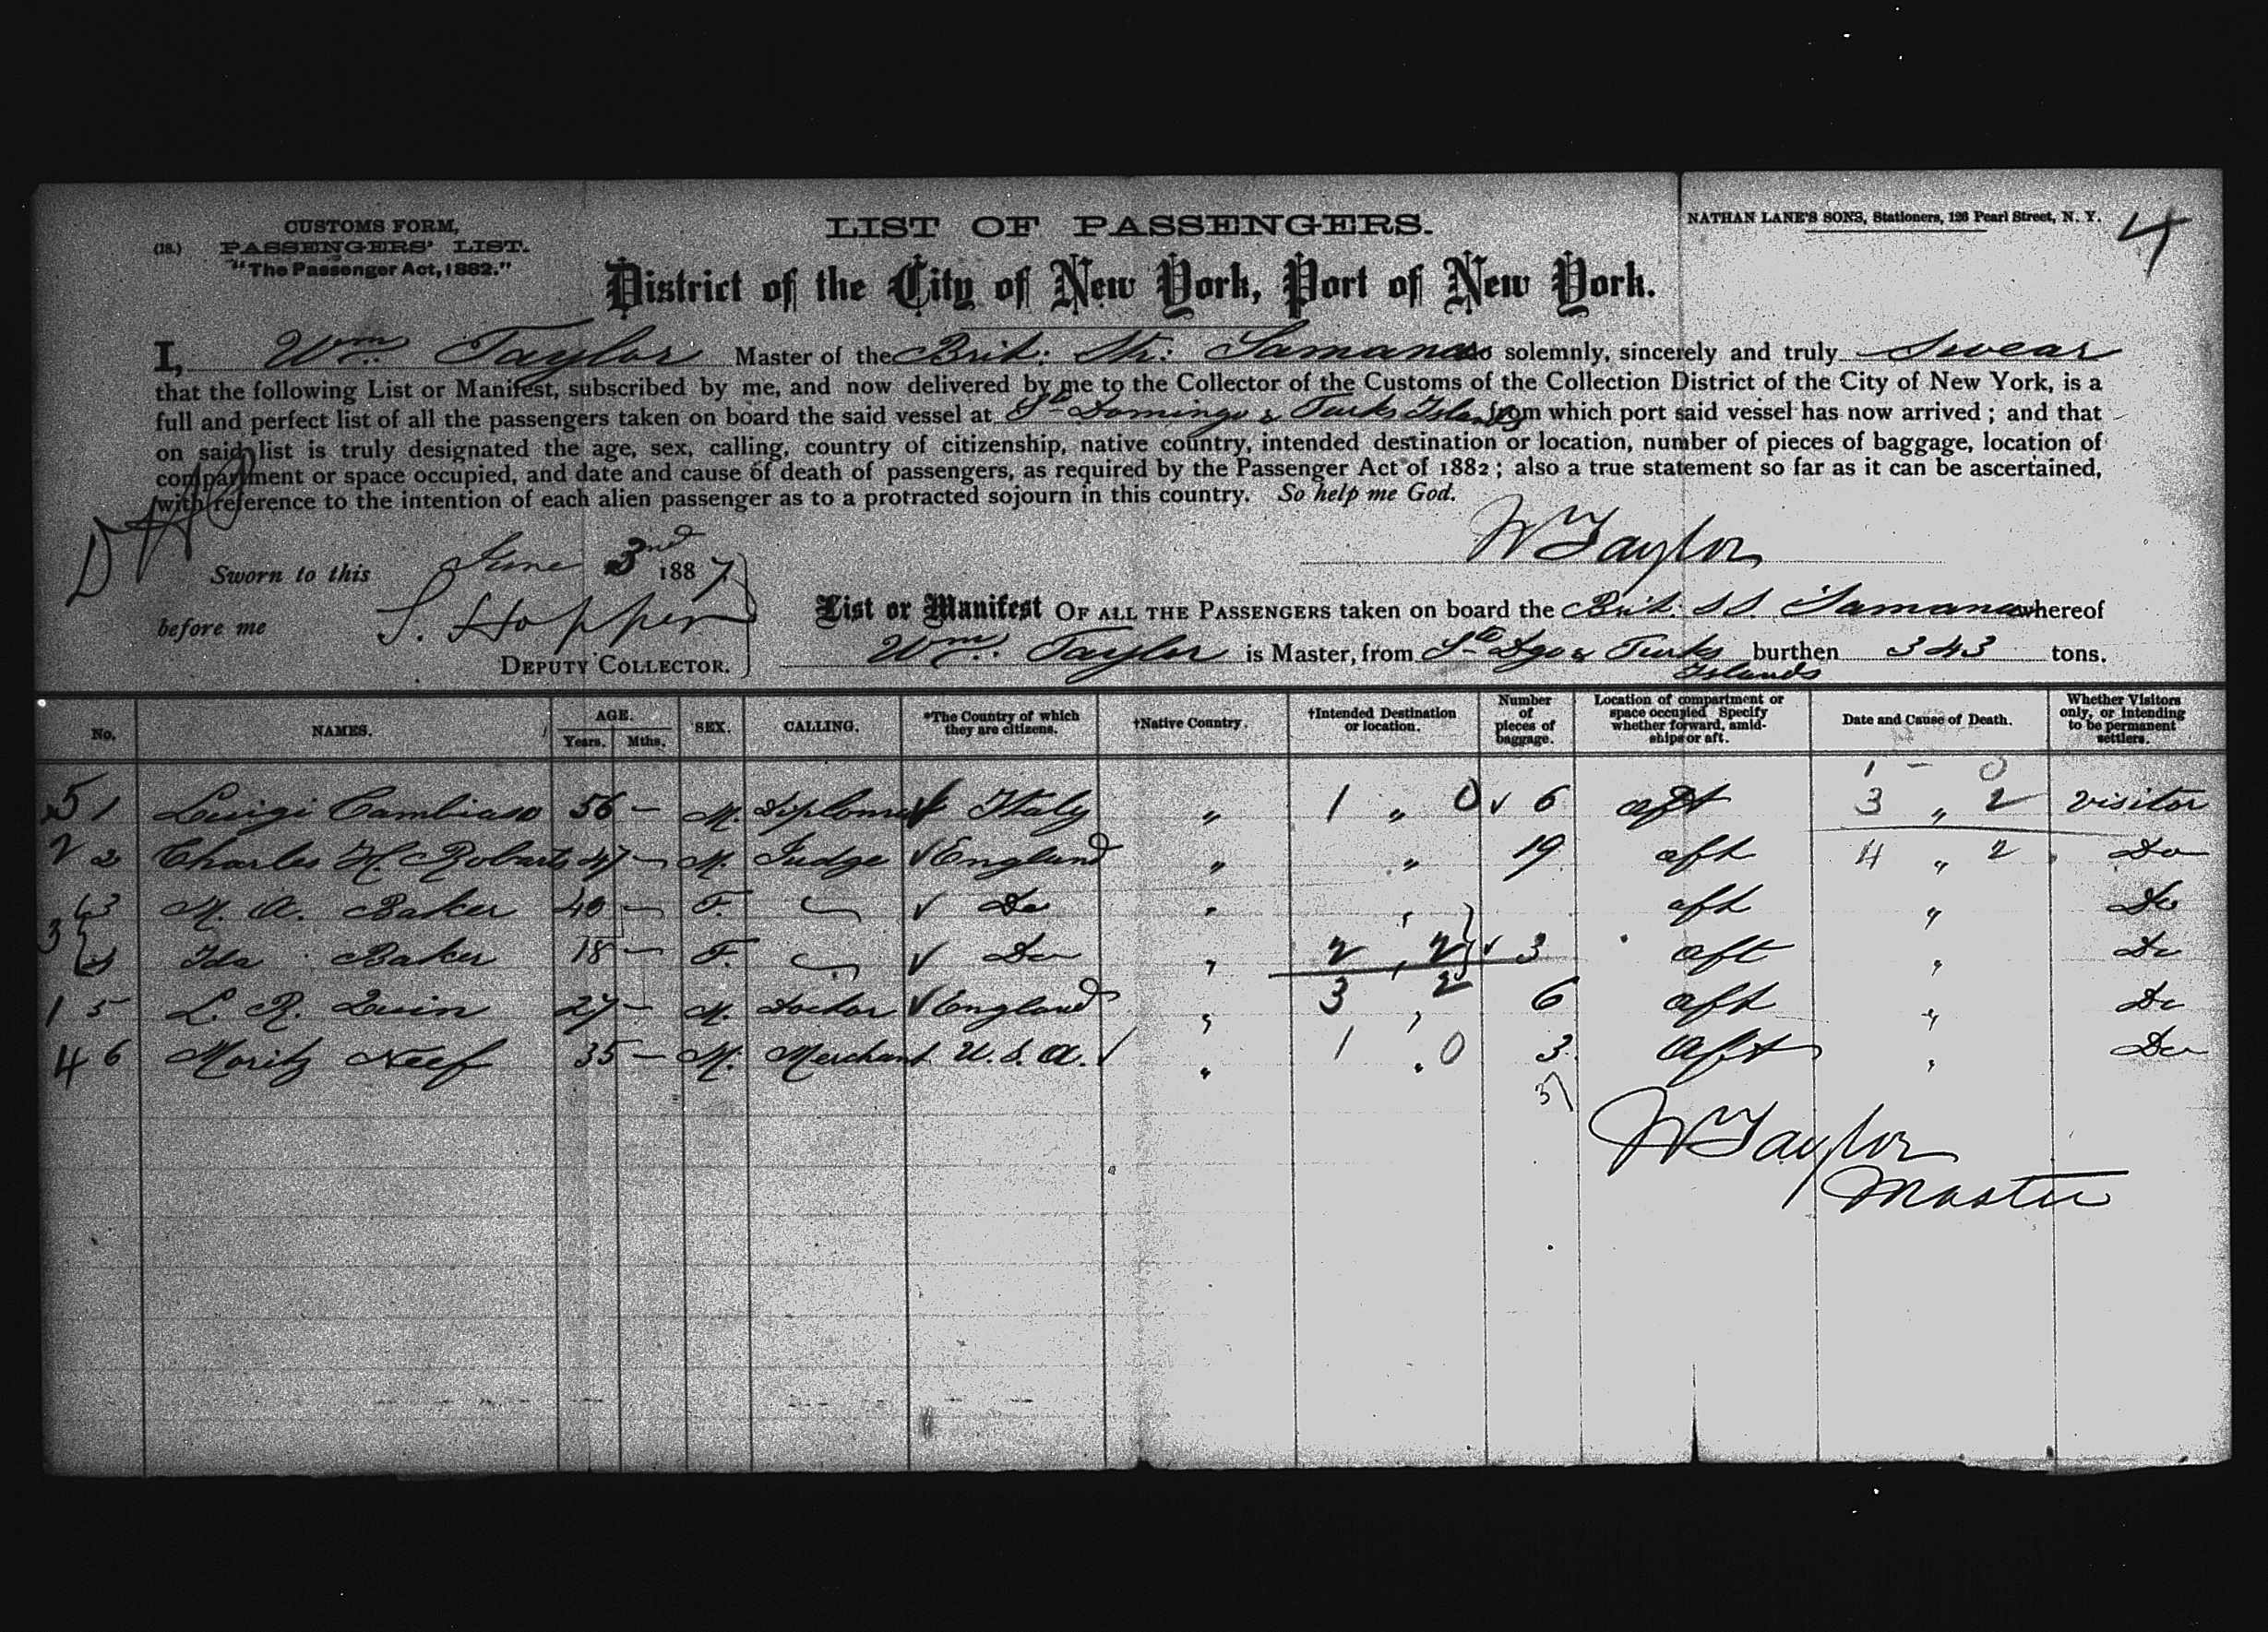 CUSTOMS FORM,
(18.) PASSENGERS' LIST.
"The Passenger Act, 1882."
LIST OF PASSENGERS.
NATHAN LANE'S SONS, Stationers, 126 Pearl Street, N. Y.
4
District of the City of New York, Port of New York.
I, Wm. Taylor Master of the Brit: Str: Samana do solemnly, sincerely and truly Swear
that the following List or Manifest, subscribed by me, and now delivered by me to the Collector of the Customs of the Collection District of the City of New York, is a
full and perfect list of all the passengers taken on board the said vessel at Sto Domingo & Turks Islands from which port said vessel has now arrived ; and that
on said list is truly designated the age, sex, calling, country of citizenship, native country, intended destination or location, number of pieces of baggage, location of
compartment or space occupied, and date and cause of death of passengers, as required by the Passenger Act of 1882 ; also a true statement so far as it can be ascertained,
with reference to the intention of each alien passenger as to a protracted sojourn in this country. So help me God.
W Taylor
Sworn to this June 3nd 1887
before me S. Hopper
DEPUTY COLLECTOR.
List or Manifest OF ALL THE PASSENGERS taken on board the Brit. S.S. Samana whereof
Wm. Taylor is Master, from Sto Dgo & Turks Islands burthen 343 tons.
No. NAMES. AGE. Years. Mths. SEX. CALLING. *The Country of which they are citizens. †Native Country. †Intended Destination or location. Number of pieces of baggage. Location of compartment or space occupied Specify whether forward, amidships or aft. Date and Cause of Death. Whether Visitors only, or intending to be permanent settlers.
1 - 0
5 1 Luigi Cambiaso 56 — M. Diplomat Italy " 1 " 0 ✓ 6 aft 3 " 2 visitor
2 2 Charles H. Robarts 47 — M. Judge ✓ England " " 19 aft 4 " 2 Do
3 3 M. A. Baker 40 — F. — ✓ Do " " aft " Do
4 Ida Baker 18 — F. — ✓ Do " 2 , 2 ✓ 3 aft " Do
1 5 L. R. Quin 27 — M. Doctor ✓ England " 3 , 2 6 aft " Do
4 6 Moritz Neef 35 — M. Merchant U. S. A. ✓ " 1 " 0 3 Aft " Do
37
W Taylor
Master